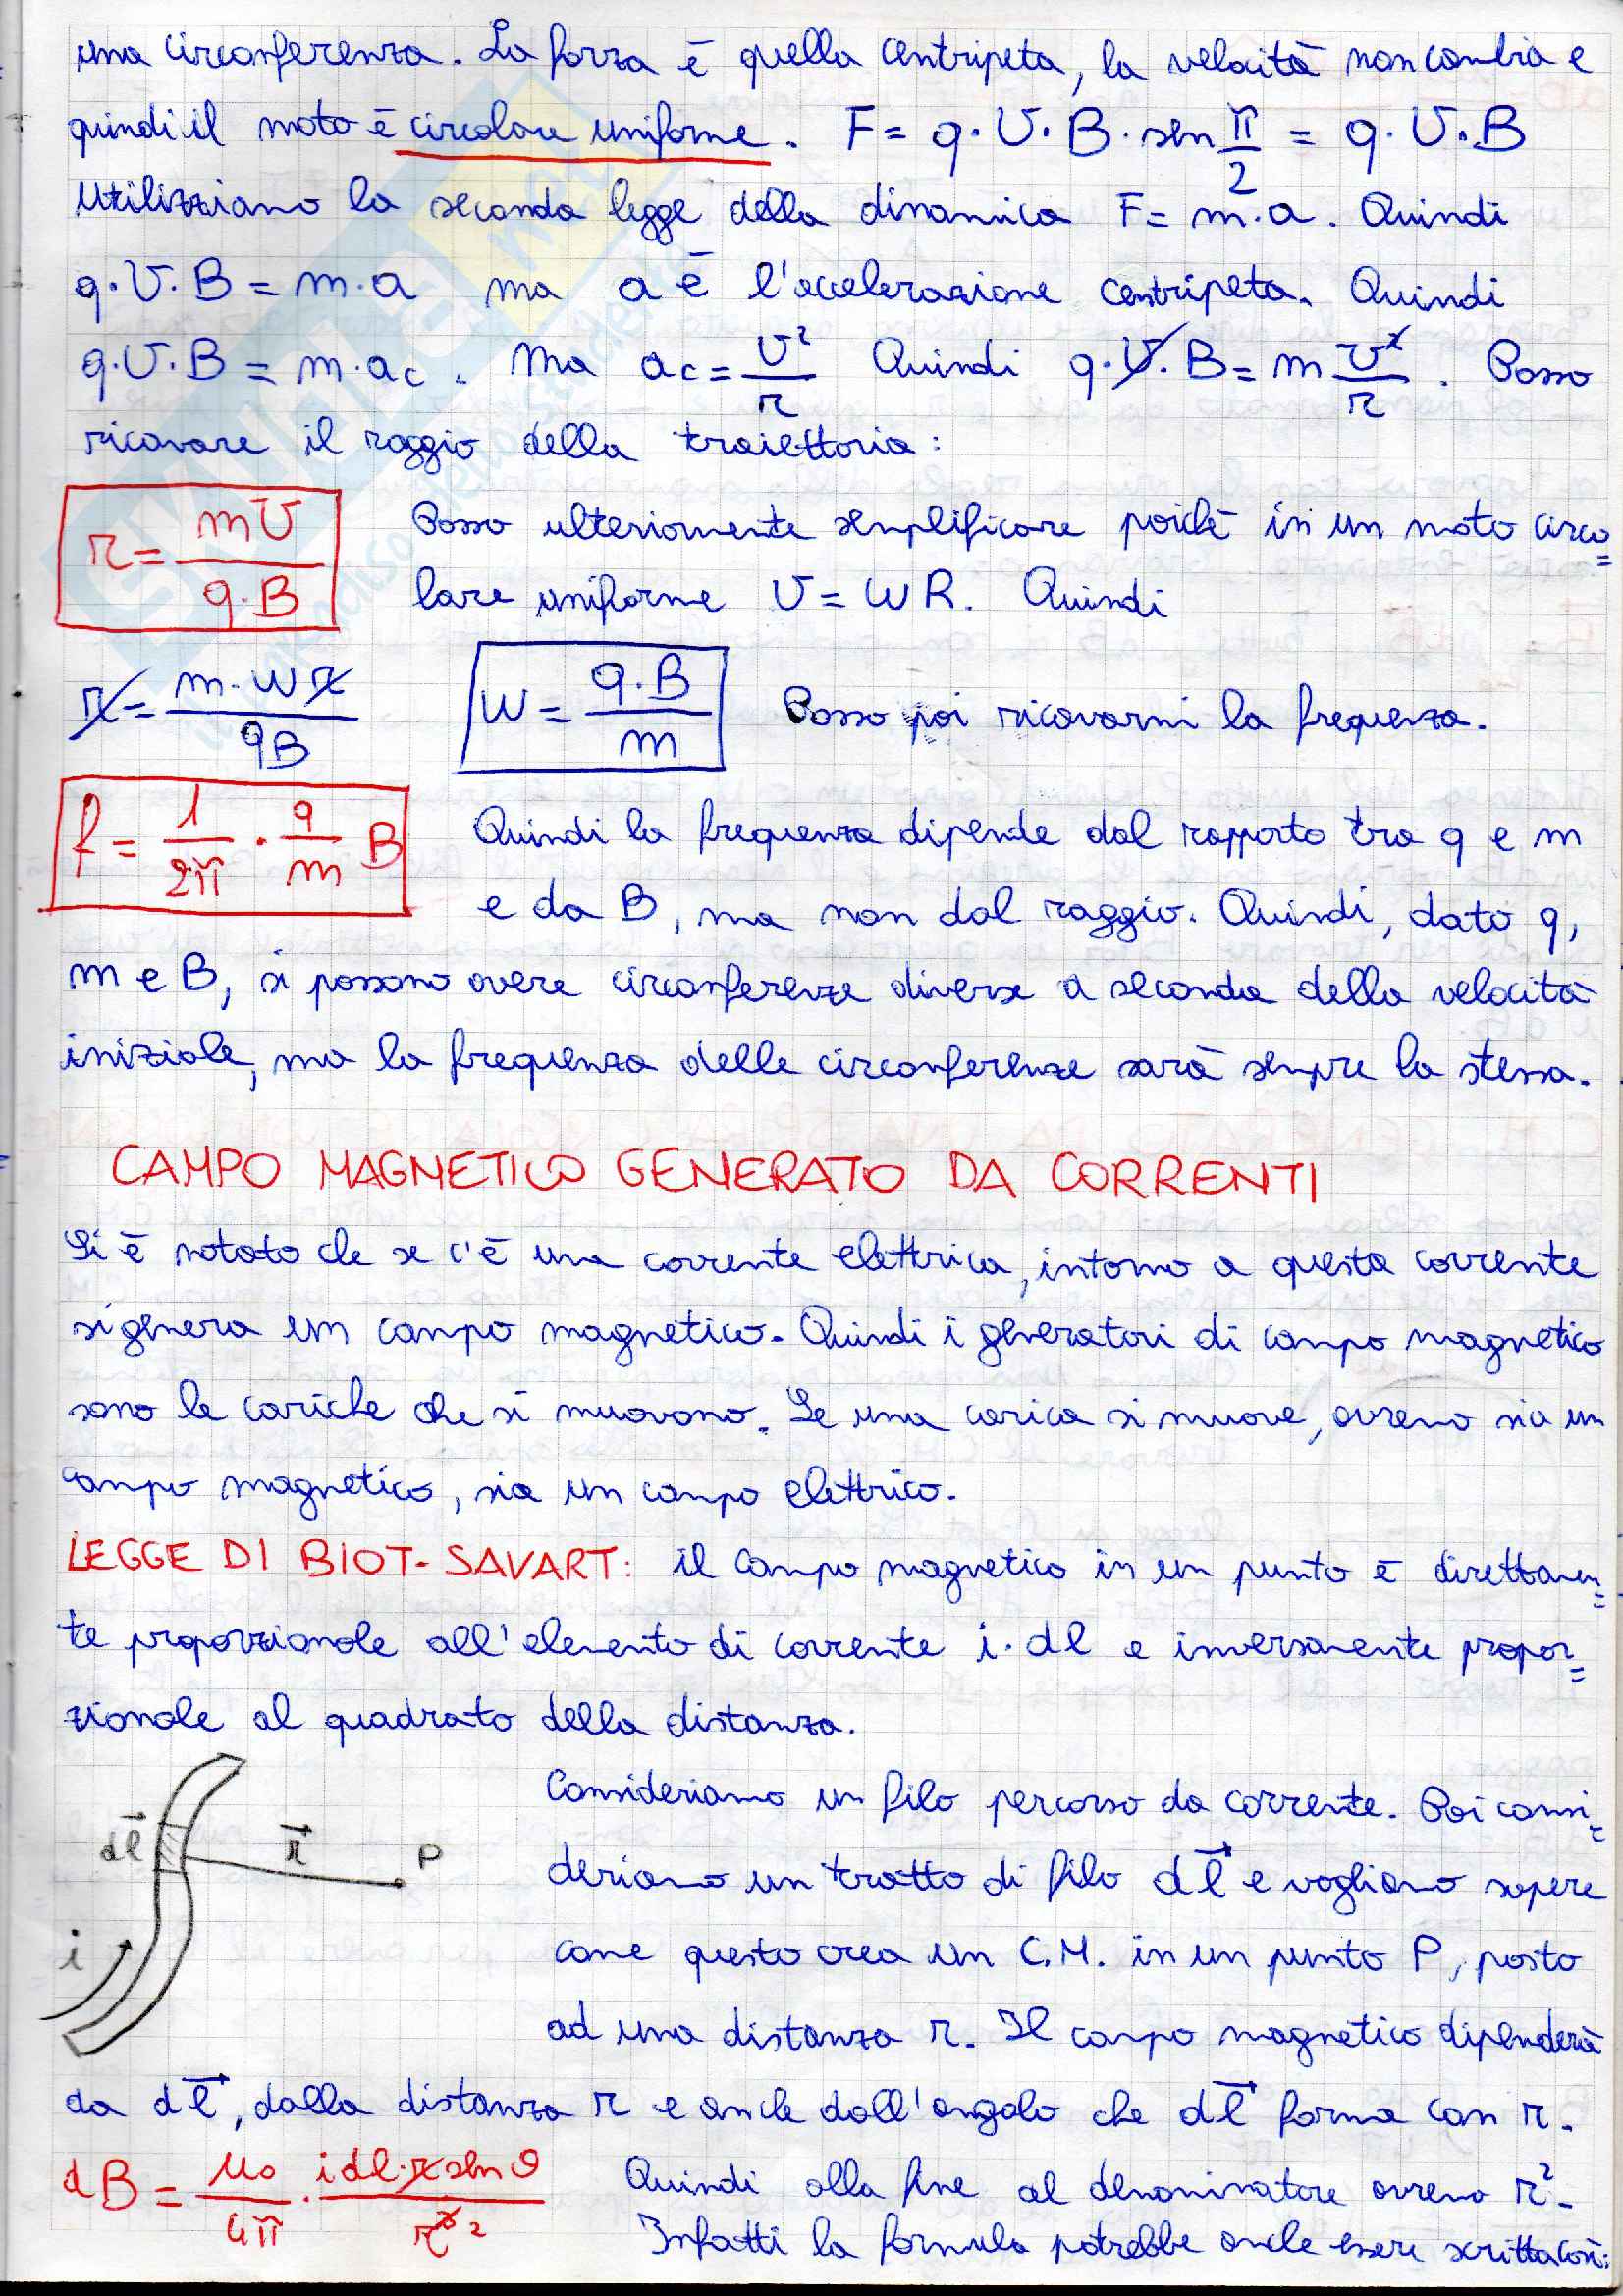 una circonferenza. La forza è quella centripeta, la velocità non cambia e
quindi il moto è circolare uniforme. F = q·V·B·sen π/2 = q·V·B
Utilizziamo la seconda legge della dinamica F = m·a. Quindi
q·V·B = m·a ma a è l'accelerazione centripeta. Quindi
q·V·B = m·ac. Ma ac = V²/r Quindi q·V·B = m V²/r. Posso
ricavare il raggio della traiettoria:
r = mV/q·B Posso ulteriormente semplificare poichè in un moto circo=
lare uniforme V = WR. Quindi
r = m·wr/qB W = q·B/m Posso poi ricavarmi la frequenza.
f = 1/2π · q/m B Quindi la frequenza dipende dal rapporto tra q e m
e da B, ma non dal raggio. Quindi, dato q,
m e B, si possono avere circonferenze diverse a seconda della velocità
iniziale, ma la frequenza delle circonferenze sarà sempre la stessa.
CAMPO MAGNETICO GENERATO DA CORRENTI
Si è notato che se c'è una corrente elettrica, intorno a questa corrente
si genera un campo magnetico. Quindi i generatori di campo magnetico
sono le cariche che si muovono. Se una carica si muove, avremo sia un
campo magnetico, sia un campo elettrico.
LEGGE DI BIOT-SAVART: il campo magnetico in un punto è direttamen=
te proporzionale all'elemento di corrente i·dl e inversamente propor=
zionale al quadrato della distanza.
Consideriamo un filo percorso da corrente. Poi consi=
dl⃗ r⃗ P
deriamo un tratto di filo dl⃗ e vogliamo sapere
i
come questo crea un C.M. in un punto P, posto
ad una distanza r. Il campo magnetico dipenderà
da dl⃗, dalla distanza r e anche dall'angolo che dl⃗ forma con r.
dB = μ₀/4π · idl·r sen θ/r³ ² Quindi alla fine al denominatore avremo r².
Infatti la formula potrebbe anche essere scritta così: